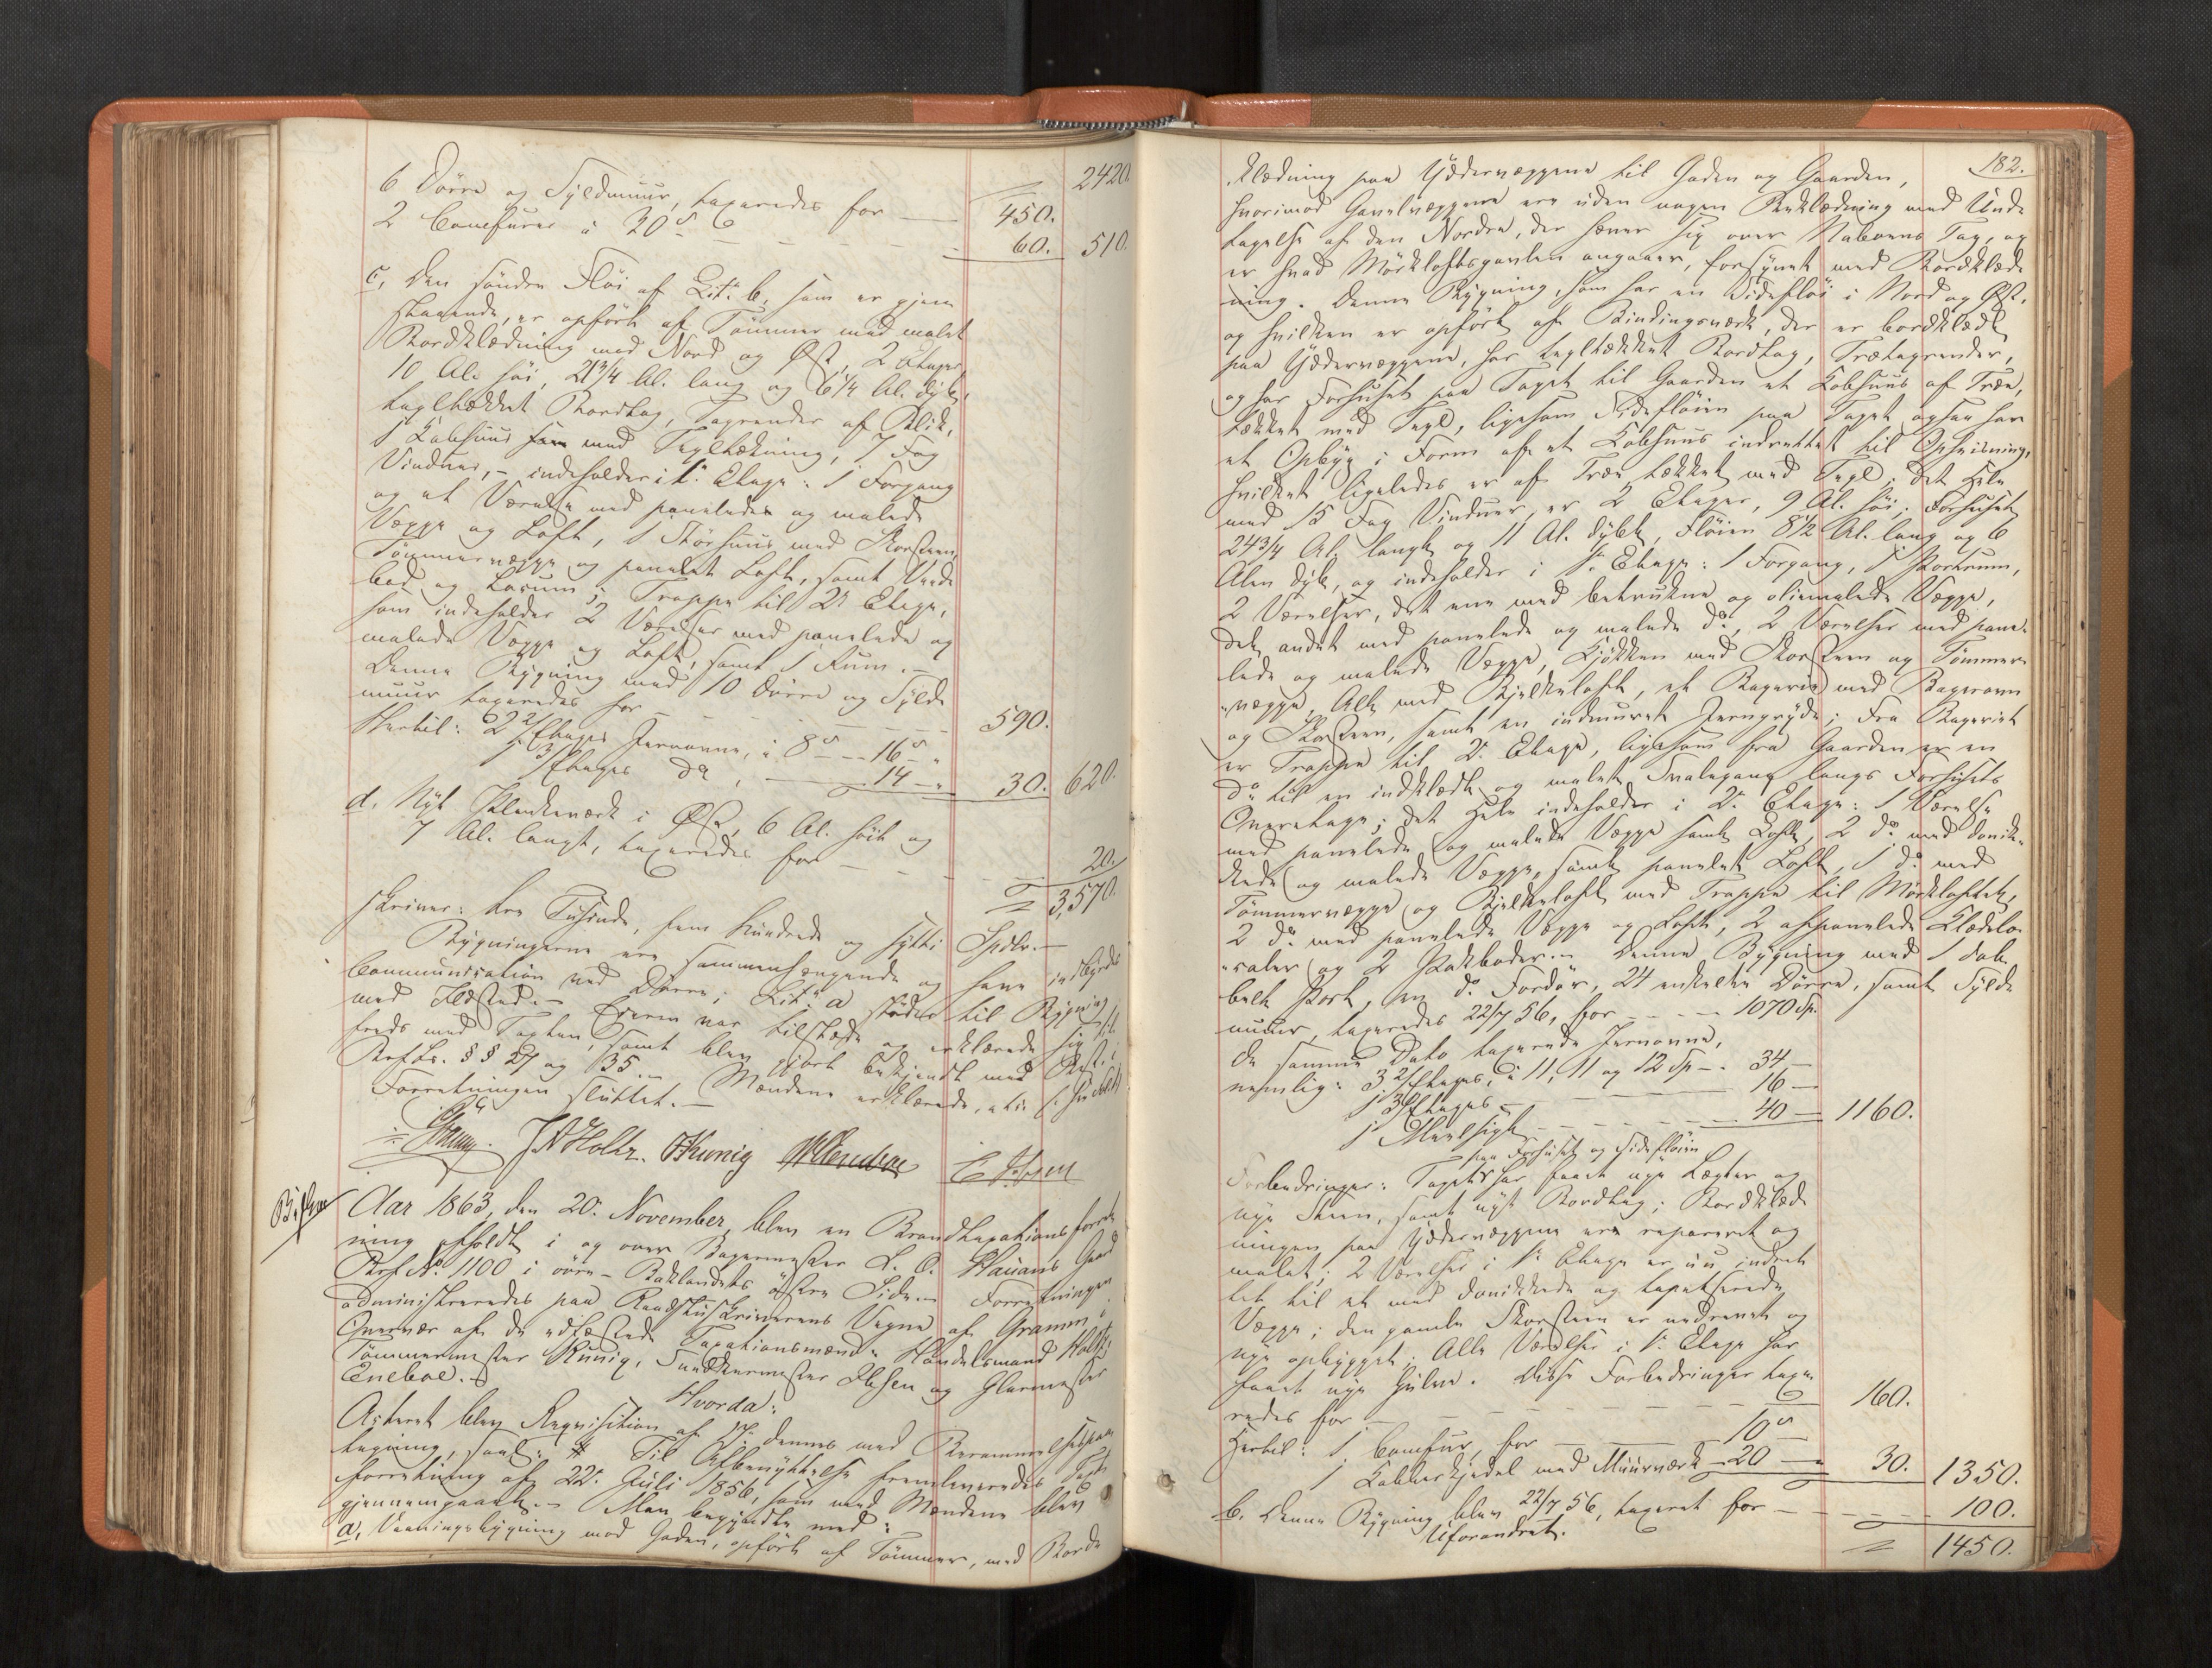 2420.
6 Dörre og Syldmuur, taxeredes for — 450.
2 Comfurer à 30 — 60. 510.
c, Den söndre Flöi af Litr. b, som er gjen-
staaende, er opfört af Tömmer med malet
Bordklædning mod Nord og Öst, 2 Etager
10 Al. höi, 21 3/4 Al. lang og 6 1/4 Al. dyb,
tegltækket Bordtag, Tagrender af Blik,
1 Kobhuus med Tegltækning, 7 Fag
Vinduer, - indeholder i 1e Etage: 1 Forgang
og et Værelse med panelede og malede
Vægge og Loft, 1 Störhuus med Skorsteen,
Tömmervægge og panelet Loft, samt Vede-
bod og Locum; Trappe til 2n Etage,
som indeholder 2 Værelser med panelede og
malede Vægge og Loft, samt 1 Rum. -
Denne Bygning med 10 Dörre og Sylde-
muur taxeredes for - - - - 590.
Hertil: 2 2/Etages Jernovne, à 8 — 16 "
1 3/Etages do, — 14 — " 30. 620.
d. Nyt Plankeværk i Öst, 6 Al. höit og
7 Al. langt, taxeredes for - - - 20.
3,570.
skriver: tre Tusinde, fem hundrede og sytti Spdlr. —
Bygningerne ere sammenhængende og have indbyrdes
Communication ved Dörre; Litr. a stöder til Bygning
med Ildsted. - Eieren var tilstede og erklærede sig til-
freds med Taxten, samt blev gjort bekjendt med
Brf. Lr. §§ 27 og 35. - Mændene erklærede,
Forretningen sluttet. —
Gramm. J. A. Holtz. Kunig Eneboe C. Ibsen
Aar 1863, den 20. November, blev en Brandtaxationsforret-
ning afholdt i og over Bagermester L. C. Hauans Gaard
Brf. No. 1100 i övre Baklandets östre Side. - Forretningen
administreredes paa Raadstuskriverens Vegne af Gramm, i
Overvær af de edfæstede Taxationsmænd: Handelsmand Holtz,
Tömmermester Kunig, Snedkermester Ibsen og Glarmester
Eneboe. -
Hvorda:
Acteret blev Requisition af 17. dennes med Berammelsespaa-
tegning, saal: # Til Afbenyttelse fremleveredes Taxt-
forretning af 22. Juli 1856, som med Mændene blev
gjennemgaaet. - Man begyndte med:
a, Vaaningsbygning mod Gaden, opfört af Tömmer, med Bord-
182.
klædning paa Ydervæggene til Gaden og Gaarden,
hvorimod Gavelvæggene ere uden nogen Beklædning med Und-
tagelse af den Nordre, der hæver sig over Naboens Tag, og
er hvad Mörkloftsgavlen angaaer, forsynet med Bordklæd-
ning. Denne Bygning, som har en Sideflöi i Nord og Öst,
og hvilken er opfört af Bindingsværk, der er bordklædt
paa Ydervæggene, har tegltækket Bordtag, Trætagrender,
og har Forhuset paa Taget til Gaarden et Kobhuus af Træ,
tækket med Tegl, ligesom Sideflöien paa Taget ogsaa har
et Opbyg i Form af et Kobhuus indrettet til Opheisning,
hvilket ligeledes er af Træ tækket med Tegl; det Hele
med 15 Fag Vinduer, er 2 Etager, 9 Al. höi; Forhuset
24 3/4 Al. langt og 11 Al. dybt, Flöien 8 1/2 Al. lang og 6
Alen dyb, og indeholder i 1e Etage: 1 Forgang, 1 Portrum,
2 Værelser, det ene med betrukne og oliemalede Vægge,
det andet med panelede og malede do, 2 Værelser med pane-
lede og malede Vægge, Kjökken med Skorsteen og Tömmer-
vægge, Alt med Bjelkeloft, et Bageri med Bagerovn
og Skorsteen, samt en indmuret Jerngryde; fra Bageriet
er Trappe til 2. Etage, ligesom fra Gaarden er en
do til en indklædt og malet Svalegang langs Forhusets
Overetage; det Hele indeholder i 2. Etage: 1 Værelse
med panelede og malede Vægge samt Loft, 2 do med donik-
kede og malede Vægge, samt panelet Loft, 1 do med
Tömmervægge og Bjelkeloft med Trappe til Mörkloftet,
2 do med panelede Vægge og Loft, 2 afpanelede Klædelo-
caler og 2 Pakboder. - Denne Bygning med 1 dob-
belt Port, en do Fordör, 24 enkelte Dörre, samt Sylde-
muur, taxeredes 22/7 56, for - - - - 1070 Sp.
De samme Dato taxerede Jernovne,
nemlig: 3 2/Etages, à 11, 11 og 12 Sp - . 34 —
1 3/Etages - — 16 —
1 Meelsigt - - - - 40 — 1160.
paa Forhuset og Sideflöien
Forbedringer: Taget har faaet nye Lægter og
nye Steen, samt nyt Bordtag; Bordklæd-
ningen paa Ydervæggene ere repareret og
malet; 2 Værelser i 1e Etage er nu indret-
tet til et med donikkede og tapetserede
Vægge; den gamle Skorsteen er nedrevet og
nye opbygget; Alle Værelser i 1. Etage har
faaet nye Gulve. Disse Forbedringer taxe-
redes for - - - - 160.
Hertil: 1 Comfur, for — 10 —
1 Kobberkjedel med Muurværk - 20 — " 30. 1350.
b. Denne Bygning blev 22/7 56, taxeret for - - - - 100.
Uforandret.
1450.